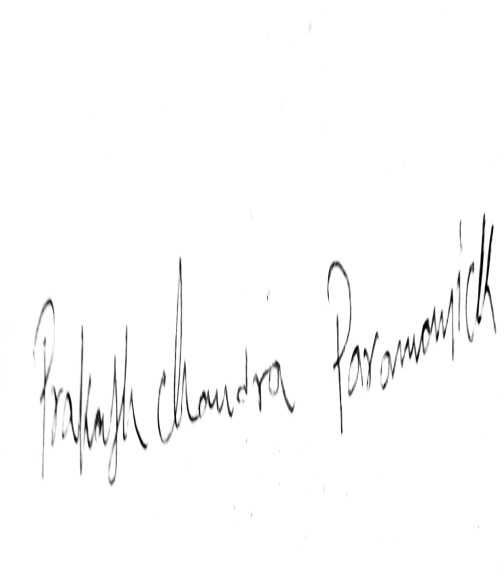 Prakash Chandra Paramanick